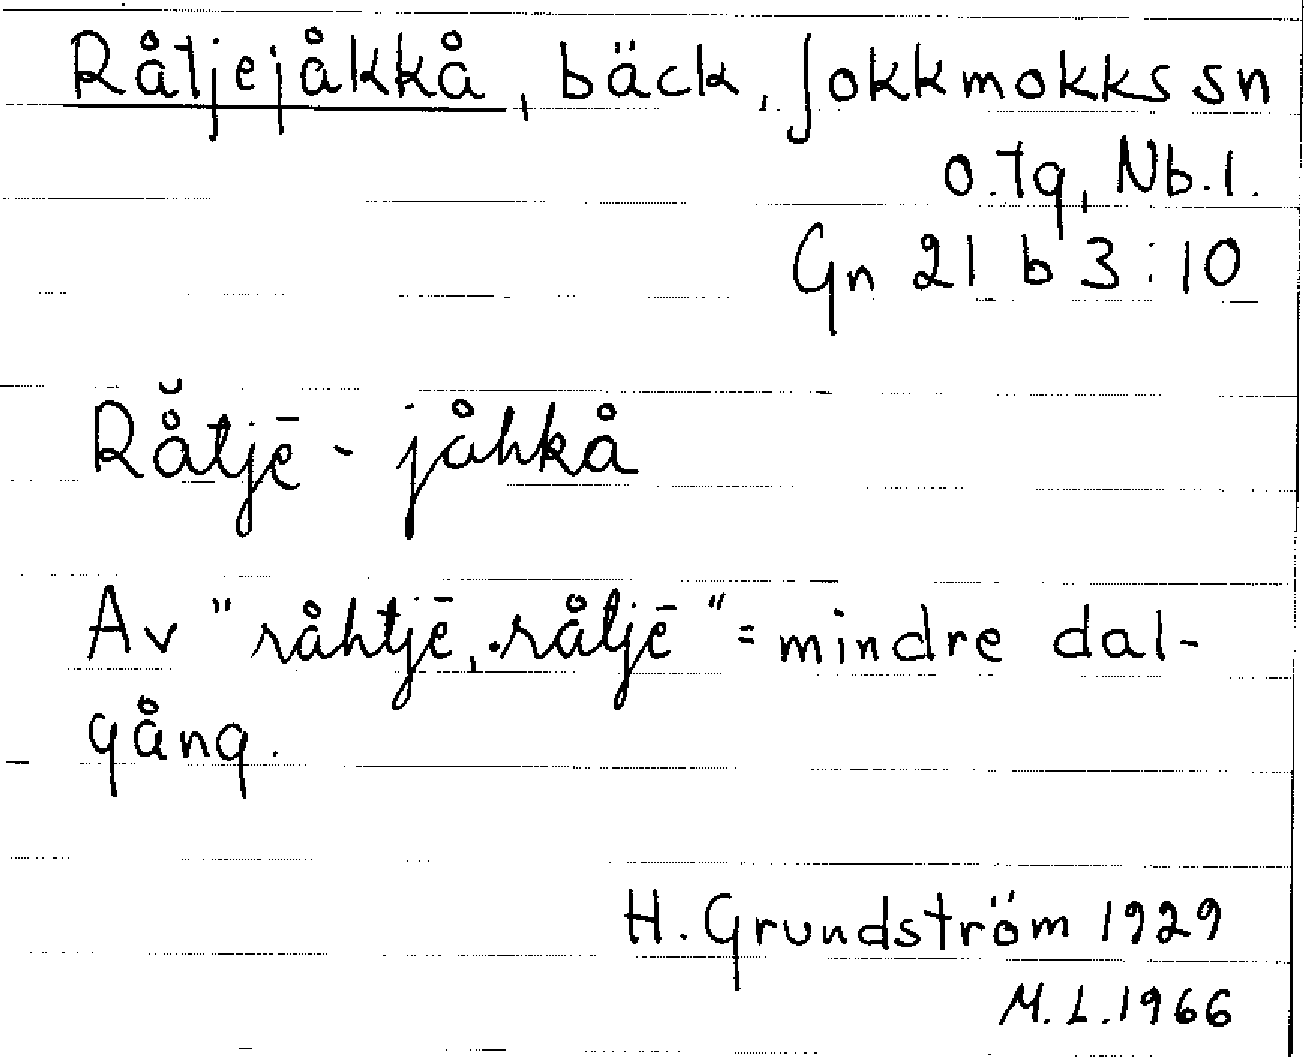 Råtjejåkkå, bäck, Jokkmokks sn
o. tg, Nb. l.
Gn 21 b 3:10
Rå̆tjē - jåhkå
Av "råhtjē, .råtjē" = mindre dal-
gång.
H. Grundström 1929
M. L. 1966